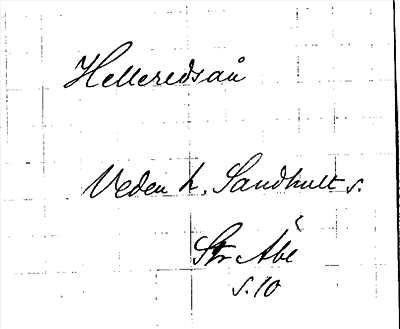 Helleredsån
Veden h. Sandhult s.
Str Åbe
s. 10